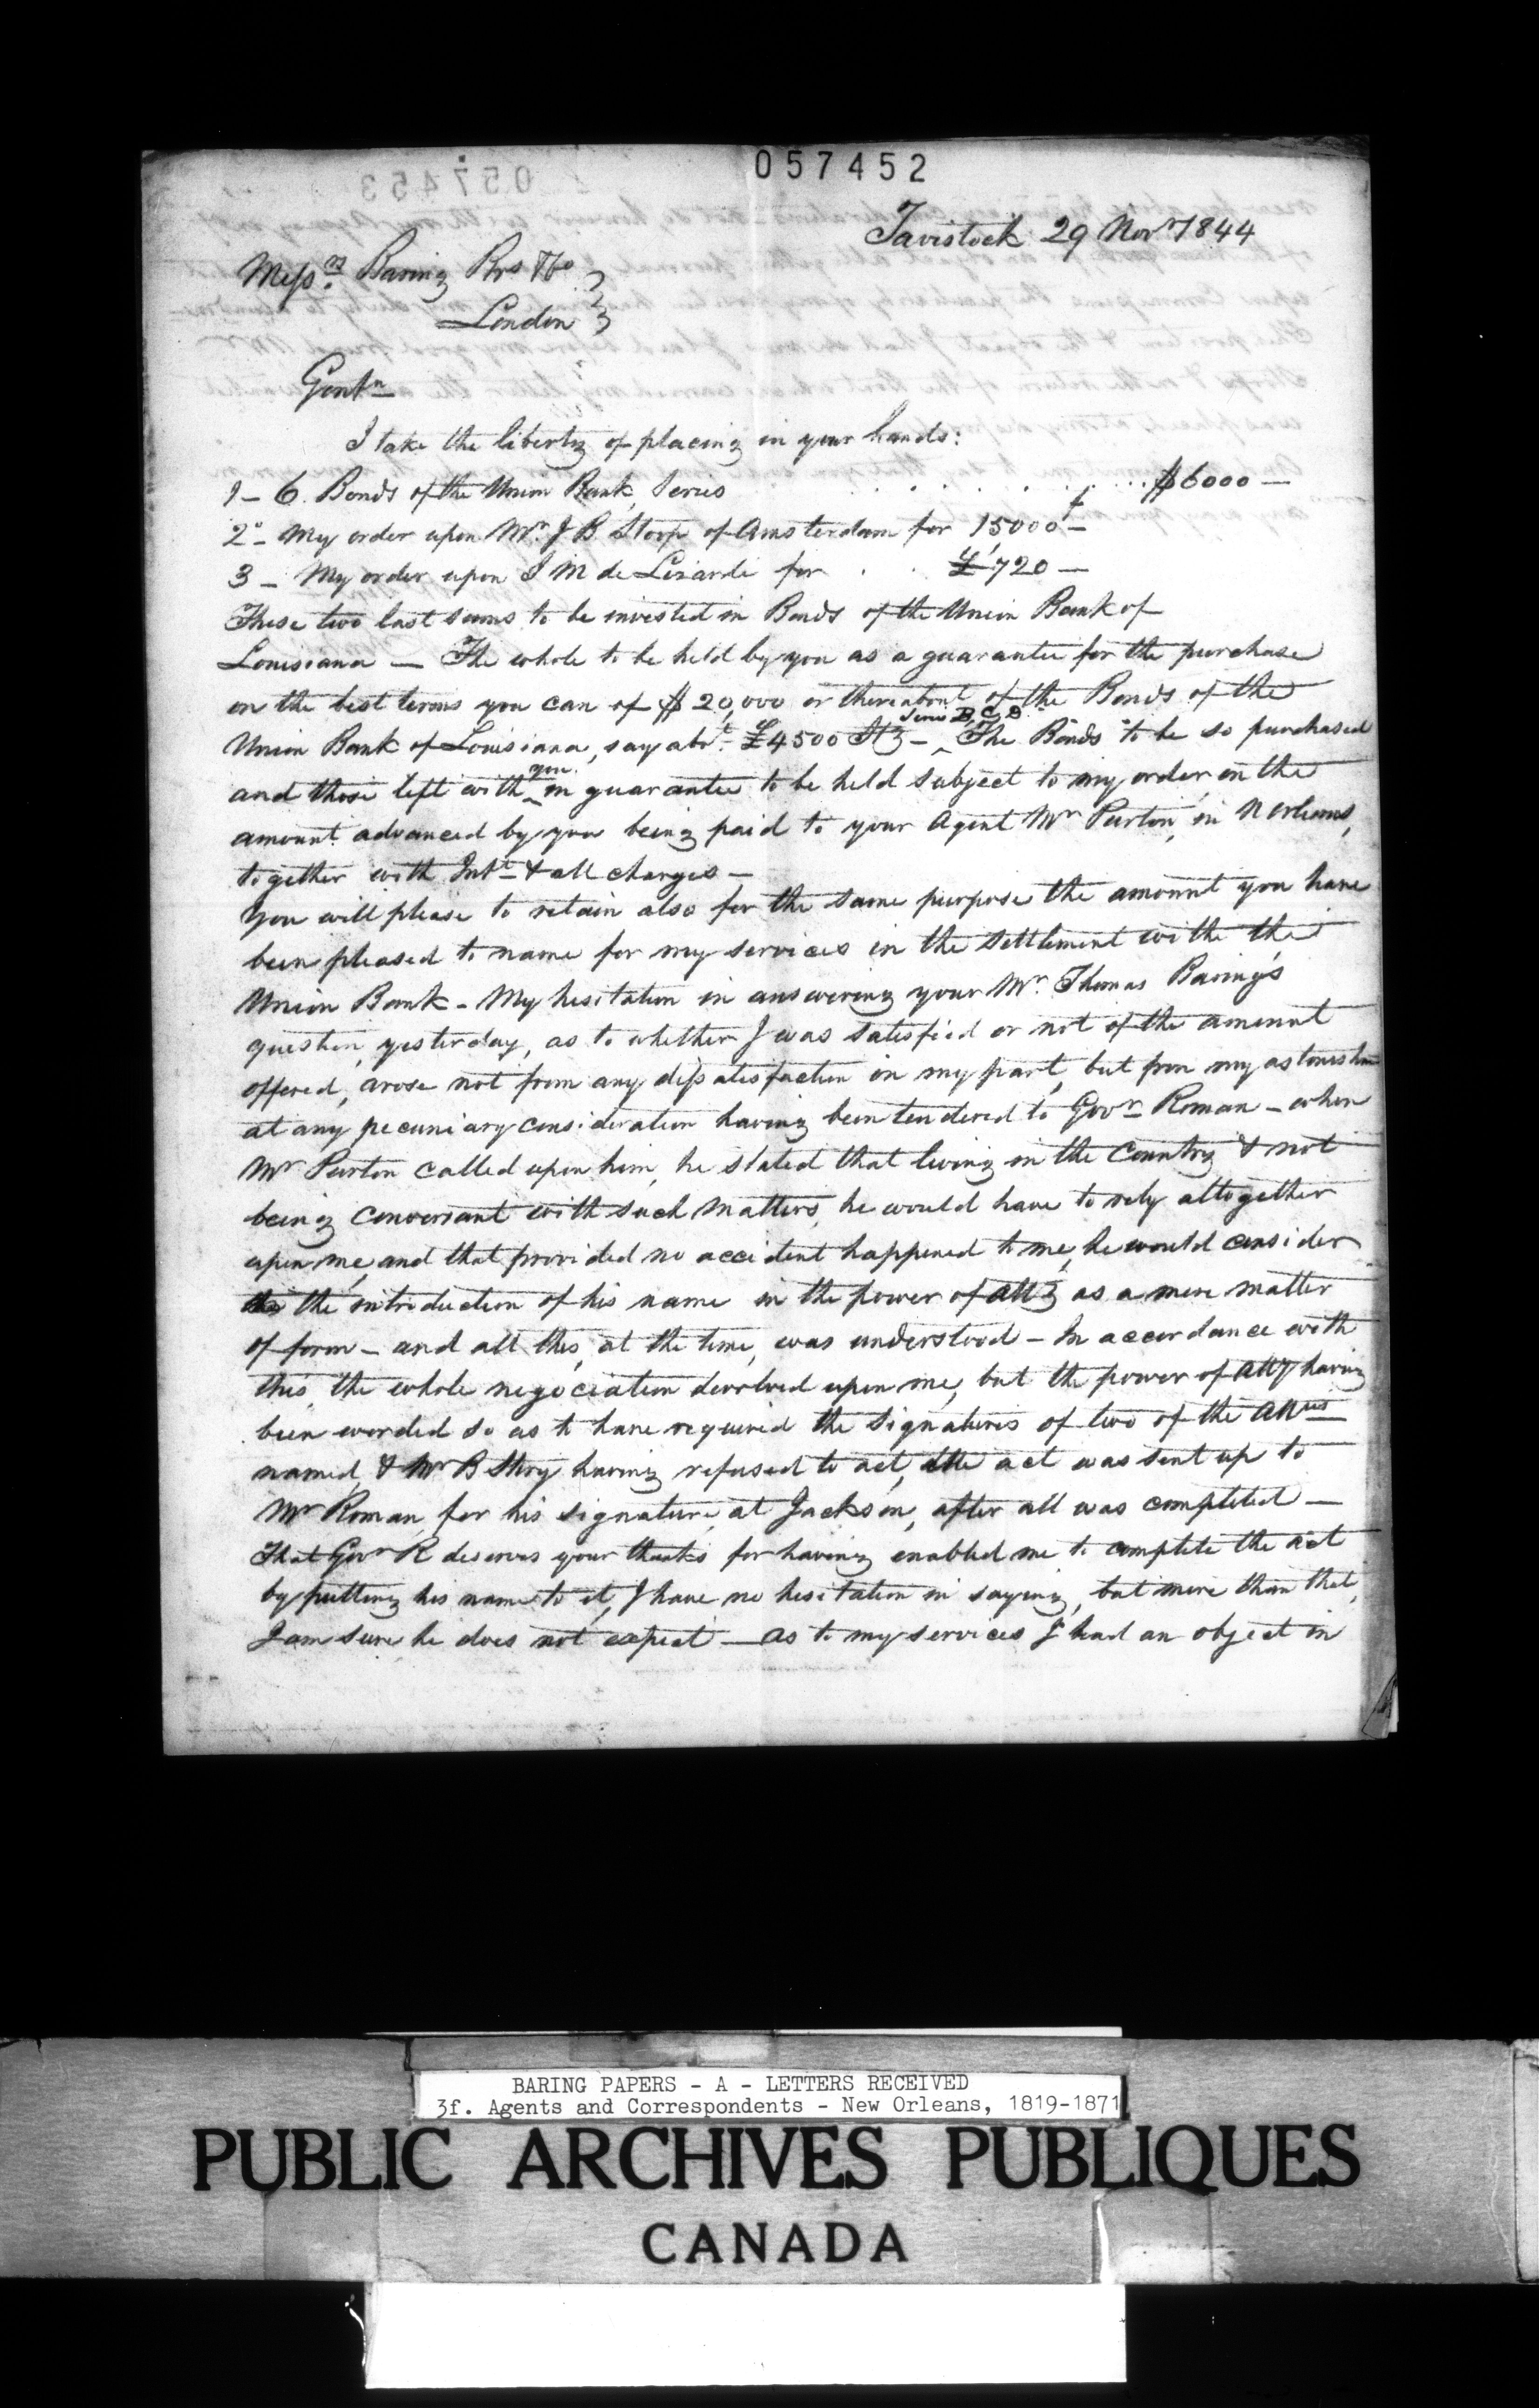 057452
057453
Tavistock 29 Novr 1844
Messrs Baring Brs & Co
London
Gentn
I take the liberty of placing in your hands:
1 - 6 Bonds of the Union Bank, Series . . . . . . . . . $6000 —
2o - My order upon Mr J B Stoop of Amsterdam for 15000 f —
3 - My order upon I M de Lizardi for . . £720 —
These two last sums to be invested in Bonds of the Union Bank of
Louisiana — The whole to be held by you as a guarantee for the purchase
on the best terms you can of $20,000 or thereabout of the Bonds of the
Union Bank of Louisiana, say abt £4500 Stg - Series B, C, D The Bonds to be so purchased
and those left with you in guarantee to be held subject to my order, on the
amount advanced by you being paid to your Agent Mr Purton, in N Orleans,
together with Intt & all charges —
You will please to retain also for the same purpose the amount you have
been pleased to name for my services in the settlement with the
Union Bank - My hesitation in answering your Mr Thomas Baring's
question, yesterday, as to whether I was satisfied or not of the amount
offered, arose not from any dissatisfaction on my part, but from my
at any pecuniary consideration having been tendered to Govr Roman - when
Mr Purton called upon him, he stated that living in the Country & not
being conversant with such matters, he would have to rely altogether
upon me, and that provided no accident happened to me, he would consider
the introduction of his name in the power of Atty as a mere matter
of form - and all this, at the time, was understood - In accordance with
this, the whole negociation devolved upon me, but the power of atty having
been worded so as to have required the signatures of two of the
named, & Mr B Story having refused to act, the act was sent up to
Mr Roman, for his signature, at Jackson, after all was completed —
That Govr R deserves your thanks for having enabled me to complete the act
by putting his name to it, I have no hesitation in saying, but more than that,
I am sure he does not expect — as to my services I had an object in
BARING PAPERS - A - LETTERS RECEIVED
3f. Agents and Correspondents - New Orleans, 1819-1871
PUBLIC ARCHIVES PUBLIQUES
CANADA